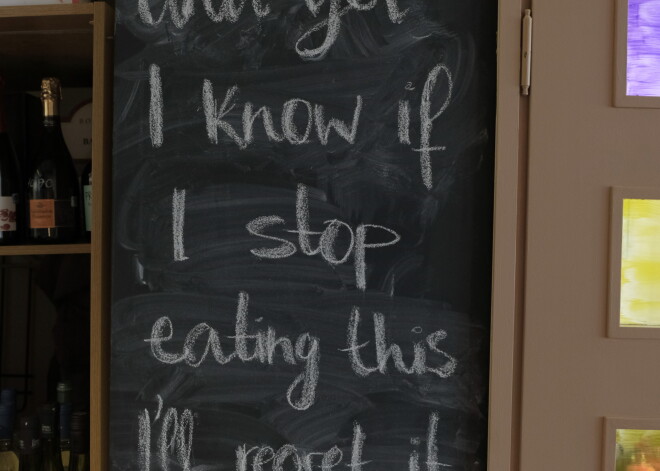 and yet
I know if
I stop
eating this
I'll regret it